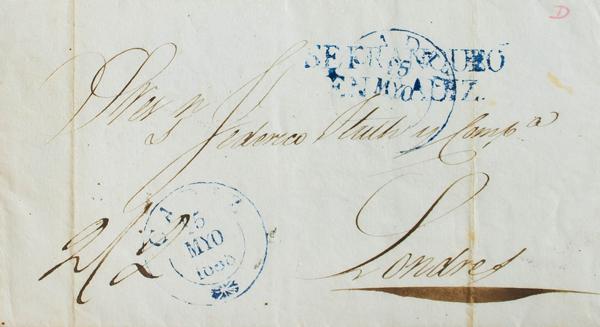 D
SE FRANQUEO
EN CADIZ.
5
MYO
Sres
Federico Huth y Comp.a
Londres
5
MYO
2/2